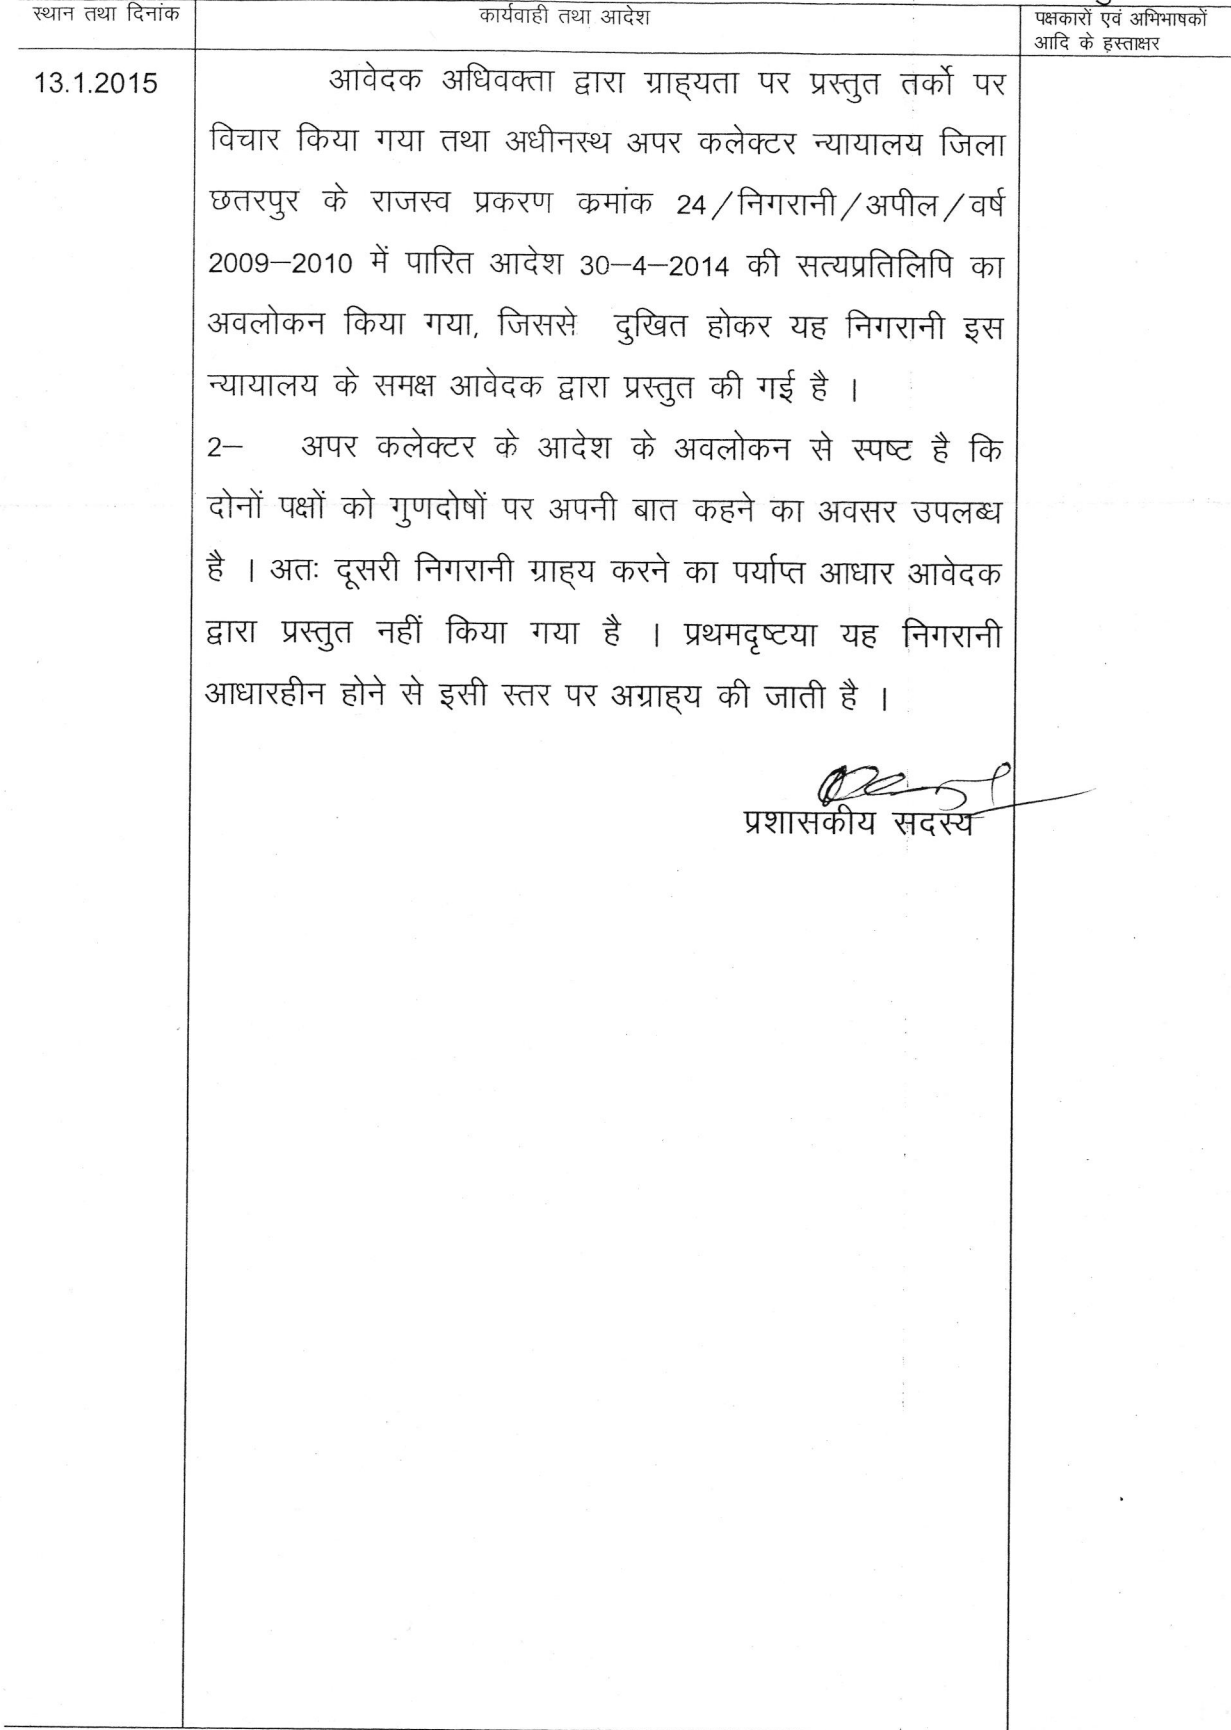 स्थान तथा दिनांक
कार्यवाही तथा आदेश
पक्षकारों एवं अभिभाषकों
आदि के हस्ताक्षर
13.1.2015
आवेदक अधिवक्ता द्वारा ग्राह्यता पर प्रस्तुत तर्को पर
विचार किया गया तथा अधीनस्थ अपर कलेक्टर न्यायालय जिला
छतरपुर के राजस्व प्रकरण कमांक 24/निगरानी/अपील/वर्ष
2009–2010 में पारित आदेश 30–4–2014 की सत्यप्रतिलिपि का
अवलोकन किया गया, जिससे दुखित होकर यह निगरानी इस
न्यायालय के समक्ष आवेदक द्वारा प्रस्तुत की गई है ।
2– अपर कलेक्टर के आदेश के अवलोकन से स्पष्ट है कि
दोनों पक्षों को गुणदोषों पर अपनी बात कहने का अवसर उपलब्ध
है । अतः दूसरी निगरानी ग्राह्य करने का पर्याप्त आधार आवेदक
द्वारा प्रस्तुत नहीं किया गया है । प्रथमदृष्टया यह निगरानी
आधारहीन होने से इसी स्तर पर अग्राह्य की जाती है ।
प्रशासकीय सदस्य